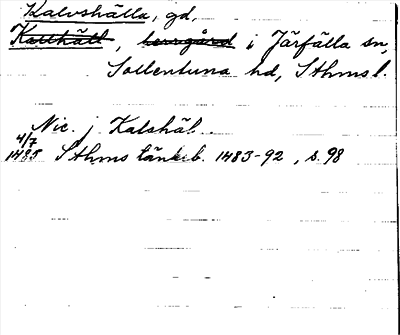 Kalvshälla, gd,
Kallhäll, herrgård i Järfälla sn,
Sollentuna hd, Sthms l.
Nic. j. Kalshäl
4/7
1485 Sthms tänkeb. 1483-92, s. 98